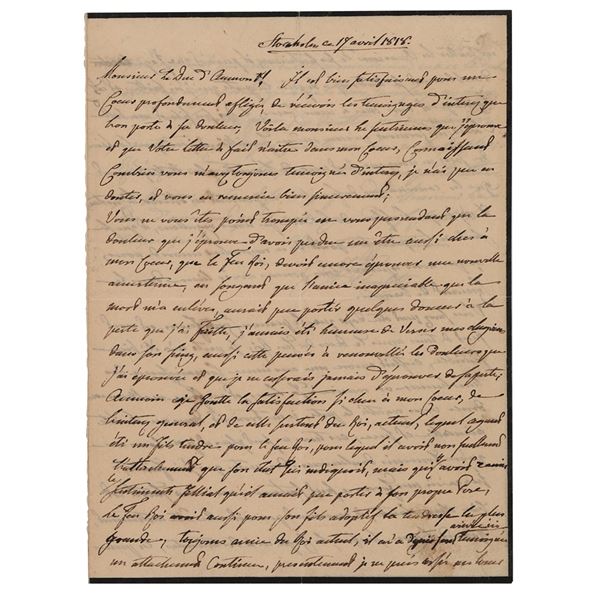 Stockholm ce 17 avril 1818.
Monsieur le Duc d'Aumont! Il est bien satisfaisant pour un
Coeur profondement affligée, de recevoir les temoignages d'interet que
l'on porte à sa douleur, Voila monsieur le sentiment que j'éprouve
et que Votre lettre à fait naitre dans mon Coeur, Connaissant
Combien vous m'avez toujours temoignés d'interet, je n'ais pue en
douter, et vous en remercie bien sincerement;
Vous ne vous êtes point trompée en vous persuadant que la
douleur que j'éprouve d'avoir perdue un être aussi cher à
mon Coeur, que le feu Roi, devoit encore éprouver une nouvelle
amertume, en songeant que l'amie inapreciable que la
mort m'a enlevée, auroit pue portée quelques douceurs à la
perte que j'ai faitte, j'aurais été heureuse de verser mes chagrins
dans son sein, aussi cette pensée à renouvellée les douleurs que
j'ai éprouvée et que je ne cesserais jamais d'éprouver de sa perte;
je Goutte la satisfaction si cher à mon Coeur, de
l'interet general, et de celle surtout du Roi, actuel, lequel ayant
été un fils tendre pour le feu Roi, pour lequel il avoit non seullement
l'attachement que son etat lui indiquoit, mais qu'il avoit
le sentiments filliel qu'il auroit pue porter à son propre Pere,
le feu Roi avoit aussi pour son fils adoptif la tendresse la plus
grande, toujours amie du Roi actuel, il m'a temoignée
un attachement Continuer, presentement je ne puis